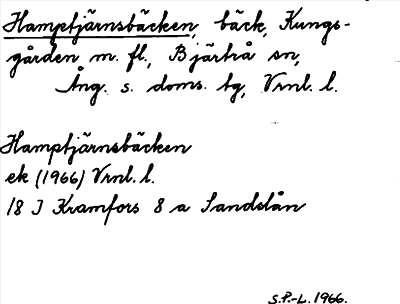 Hamptjärnsbäcken, bäck, Kungs-
gården m. fl., Bjärtrå sn,
Ång. s. doms. tg, Vrnl. l.
Hamptjärnsbäcken
ek (1966) Vrnl. l.
18 J Kramfors 8 a Sandslån
S.P.-L. 1966.